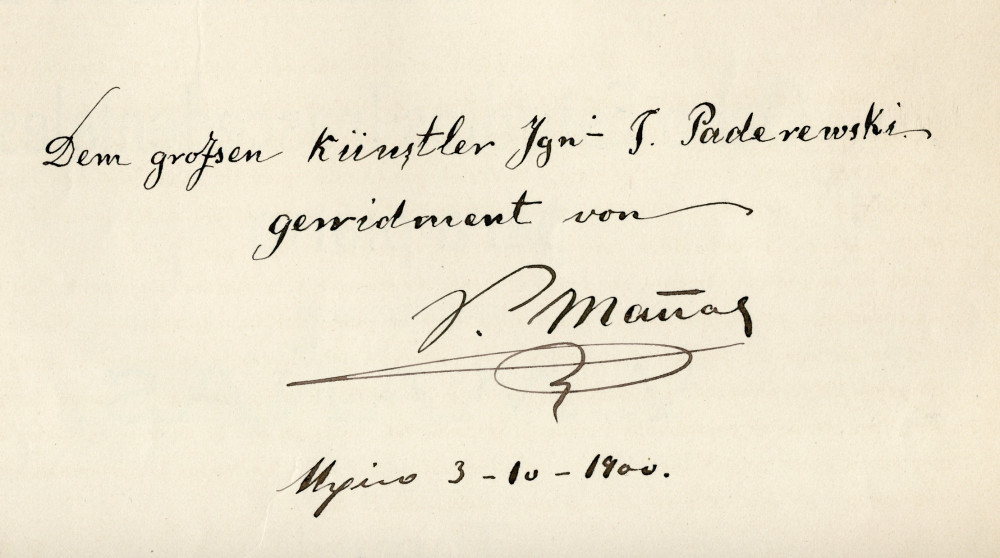 Dem großen Künstler Ign. J. Paderewski.
gewidment von
V. Mañas
Mexico 3-10-1900.